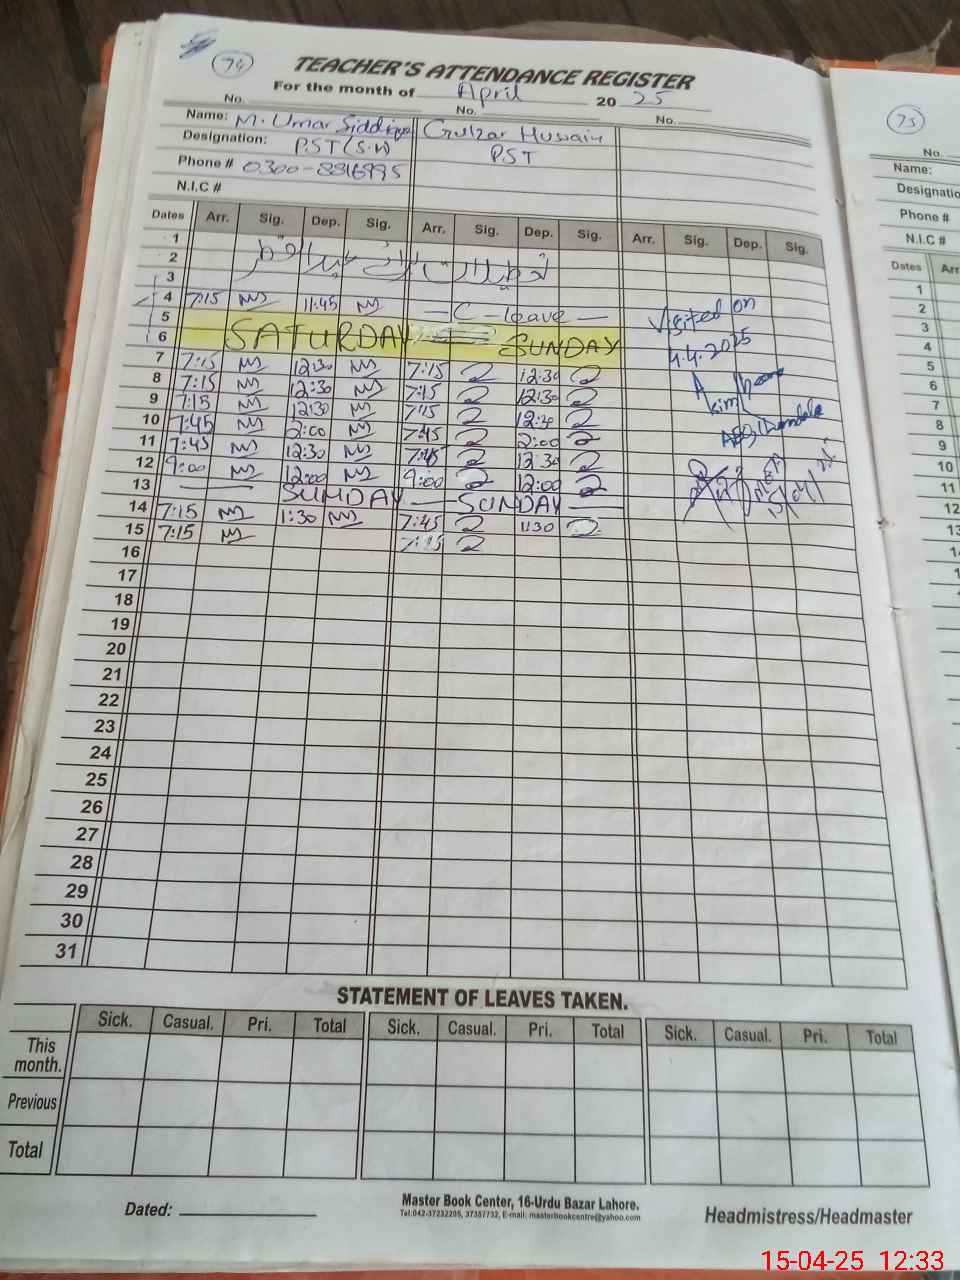 74
TEACHER'S ATTENDANCE REGISTER
For the month of April 2025
No. No. No.
Name: M. Umar Siddique Gulzar Hussain
Designation: PST (S.H) PST
Phone # 0300-8816995
N.I.C #
Dates Arr. Sig. Dep. Sig. Arr. Sig. Dep. Sig. Arr. Sig. Dep. Sig.
1
2
3
4 7:15 11:45 C - leave
5
6 SATURDAY SUNDAY
7 7:15 12:30 7:15 12:30
8 7:15 12:30 7:15 12:30
9 7:15 12:30 7:15 12:30
10 7:45 2:00 7:45 2:00
11 7:45 12:30 7:45 12:30
12 9:00 12:00 9:00 12:00
13 SUNDAY SUNDAY
14 7:15 1:30 7:45 1:30
15 7:15 7:15
16
17
18
19
20
21
22
23
24
25
26
27
28
29
30
31
Visited on
4.4.2025
STATEMENT OF LEAVES TAKEN.
Sick. Casual. Pri. Total Sick. Casual. Pri. Total Sick. Casual. Pri. Total
This month.
Previous
Total
Dated:
Master Book Center, 16-Urdu Bazar Lahore.
Tel:042-37232205, 37357732, E-mail: masterbookcentre@yahoo.com
Headmistress/Headmaster
75
No.
Name:
Designatio
Phone #
N.I.C #
Dates Arr
1
2
3
4
5
6
7
8
9
10
11
12
13
15-04-25 12:33